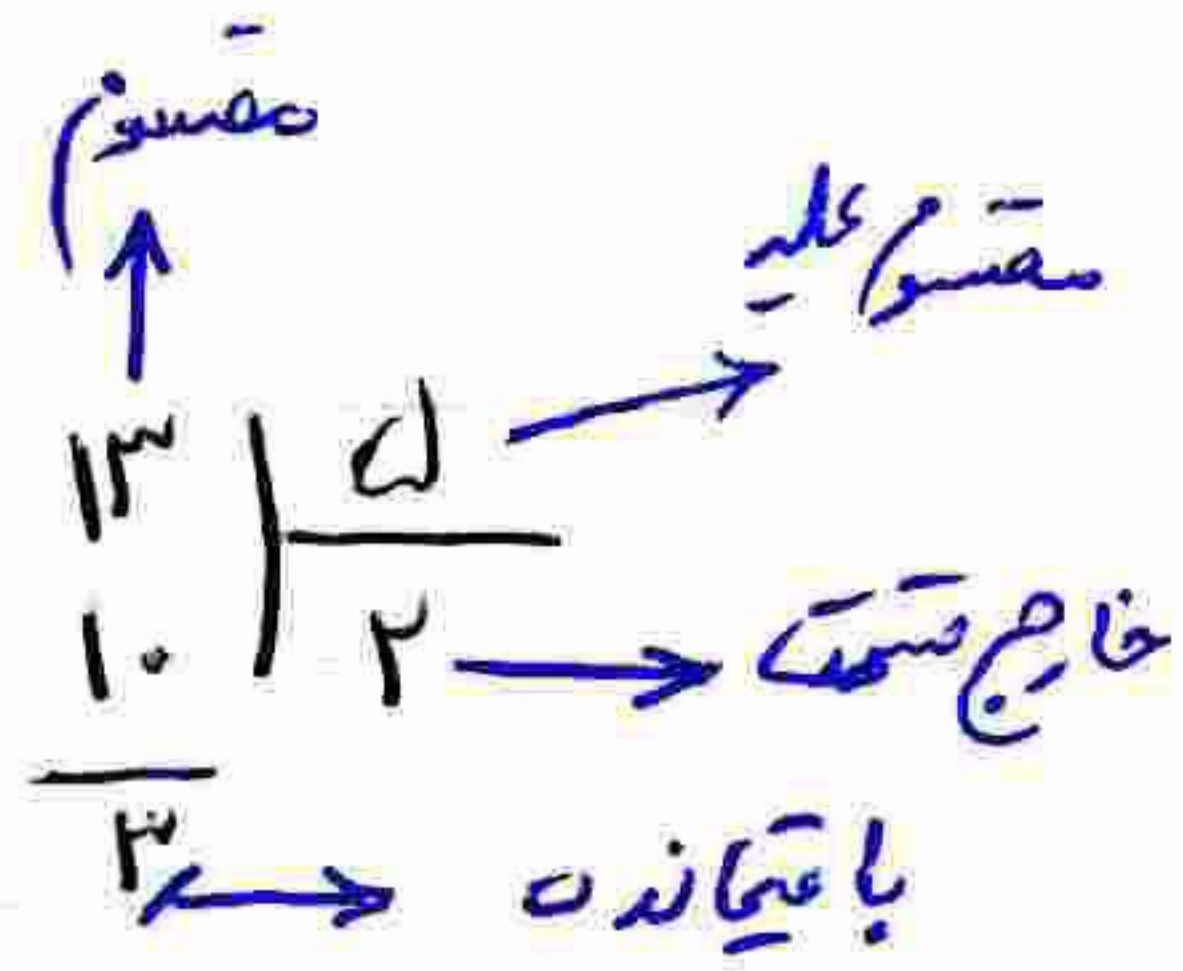 مقسوم
مقسوم علیه
۱۳ ۵
۱۰ ۲ خارج قسمت
۳ باقیمانده